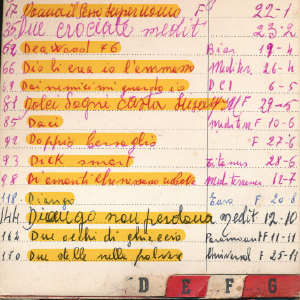 17 Donna il sesso superuomo F 22-1
30 Due crociate medit 23-2
62 Dea Wood 76 Bior 19-4
66 Dio li crea io l'ammazzo Mediter. 26-4
69 Dai nemici mi guardo io DCI 6-5
81 Dolci sogni F 29-5
85 Daci meditem F 10-6
92 Doppio bersaglio F 27-6
93 Dick smart 28-6
98 Diamanti che nessuno 12-7
118 Django Euro F 20 8
144 Django non perdona medit 12-10
164 Due occhi di ghiaccio Paramount F 11-11
170 Due stelle nella polvere Universal F 25-11
D E F G